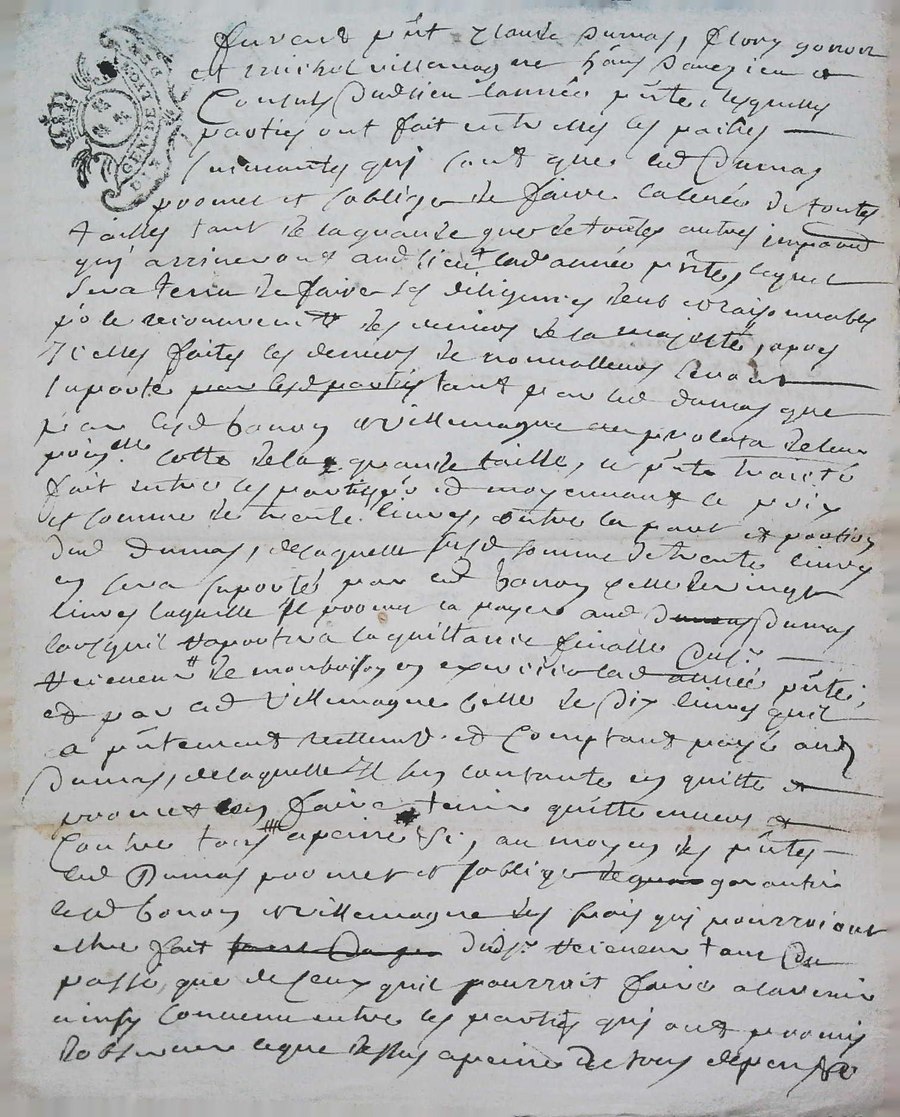 GEN. DE
furent pñt Claude Dumas, fleury
et michel villemagne
Consuls dudlieu lannée pñte lesquelles
parties ont fait entre elles les paches
suivantes qui sont que led Dumas
promet et soblige de faire la levée de toutes
tailles tant de la grande que de toutes autres
qui arriveront aud lieu lad année pñte, lequel
sera tenu de faire les diligences deues et raisonnables
p.r le recouvrem.t des deniers de sa majesté, apres
icelles faites les deniers de nonvalleurs seront
suporté par lesd parties tant par led dumas que
par lesd bonon et villemagne au prorata de leur
cotte de la grande taille, le pñte traité
fait entre les parties et moyennant le prix
et somme de trente livres, outre la part et portion
dud Dumas, de laquelle susd somme de trente livres
en sera suporté par led bonon celle de vingt
livres laquelle il promet la payer aud Dumas Dumas
lorsquil raportera la quittance finalle dus.r
receveur de monbrison en exercice lad année pñte,
et par led villemagne celle de dix livres quil
a pñtement reellem.t et comptant payé aud
Dumas, de laquelle il sen contante en quitte et
promet len faire tenir quitte envers et
contre tous a peine &, au moyen des pñtes
led Dumas promet et soblige garantir
lesd bonon et villemagne des frais qui pourroient
estre fait dud s.r receveur tant du
passé, que de ceux quil pourroit faire a lavenir
ainsy convenu entre les parties qui ont promis
dobserver ce que dessus a peine de tous depens &